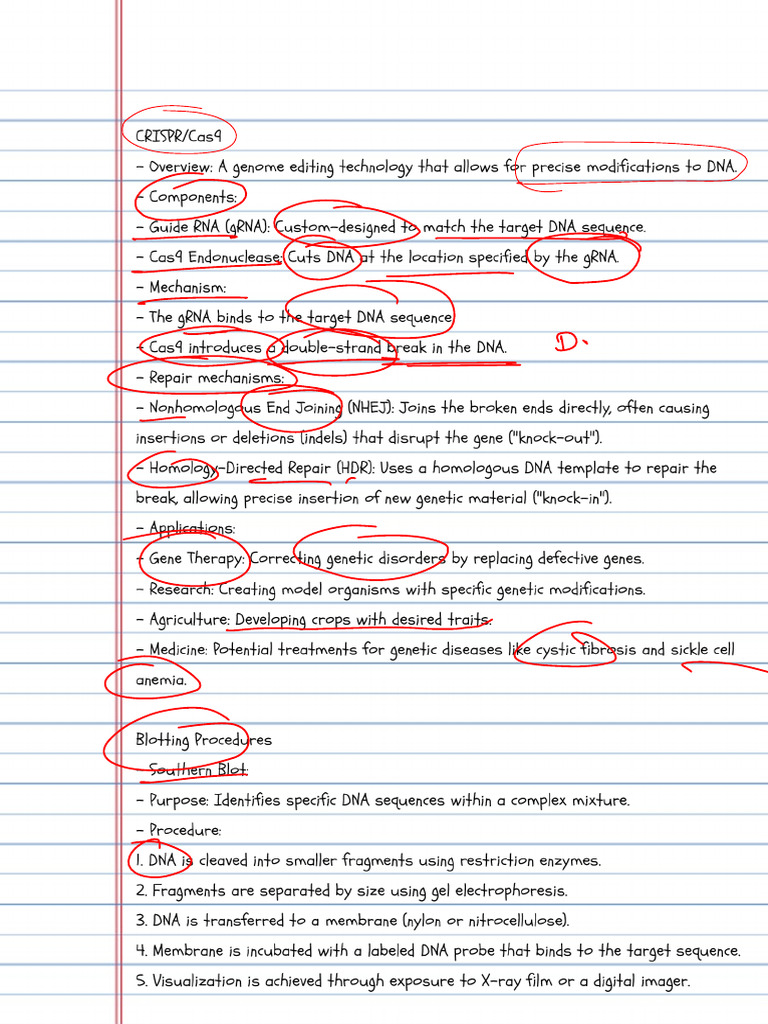 CRISPR/Cas9
- Overview: A genome editing technology that allows for precise modifications to DNA.
- Components:
- Guide RNA (gRNA): Custom-designed to match the target DNA sequence.
- Cas9 Endonuclease: Cuts DNA at the location specified by the gRNA.
- Mechanism:
- The gRNA binds to the target DNA sequence.
- Cas9 introduces a double-strand break in the DNA. D.
- Repair mechanisms:
- Nonhomologous End Joining (NHEJ): Joins the broken ends directly, often causing
insertions or deletions (indels) that disrupt the gene ("knock-out").
- Homology-Directed Repair (HDR): Uses a homologous DNA template to repair the
break, allowing precise insertion of new genetic material ("knock-in").
- Applications:
- Gene Therapy: Correcting genetic disorders by replacing defective genes.
- Research: Creating model organisms with specific genetic modifications.
- Agriculture: Developing crops with desired traits.
- Medicine: Potential treatments for genetic diseases like cystic fibrosis and sickle cell
anemia.
Blotting Procedures
- Southern Blot:
- Purpose: Identifies specific DNA sequences within a complex mixture.
- Procedure:
1. DNA is cleaved into smaller fragments using restriction enzymes.
2. Fragments are separated by size using gel electrophoresis.
3. DNA is transferred to a membrane (nylon or nitrocellulose).
4. Membrane is incubated with a labeled DNA probe that binds to the target sequence.
5. Visualization is achieved through exposure to X-ray film or a digital imager.